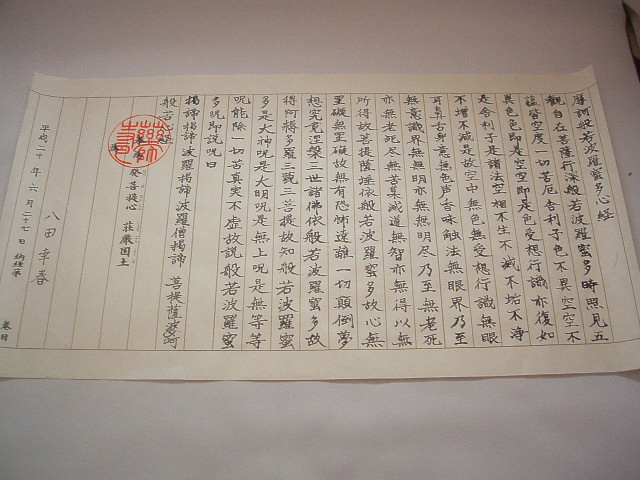 摩訶般若波羅蜜多心経
観自在菩薩行深般若波羅蜜多時照見五
蘊皆空度一切苦厄舎利子色不異空空不
異色色即是空空即是色受想行識亦復如
是舎利子是諸法空相不生不滅不垢不浄
不増不減是故空中無色無受想行識無眼
耳鼻舌身意無色声香味触法無眼界乃至
無意識界無無明亦無無明尽乃至無老死
亦無老死尽無苦集滅道無智亦無得以無
所得故菩提薩埵依般若波羅蜜多故心無
罣礙無罣礙故無有恐怖遠離一切顛倒夢
想究竟涅槃三世諸佛依般若波羅蜜多故
得阿耨多羅三藐三菩提故知般若波羅蜜
多是大神呪是大明呪是無上呪是無等等
呪能除一切苦真実不虚故説般若波羅蜜
多呪即説呪曰
掲諦掲諦波羅掲諦 波羅僧掲諦 菩提薩婆訶
般若心経
發菩提心 荘厳国土
八田幸春
平成二十年六月二十七日 納経業
巻目